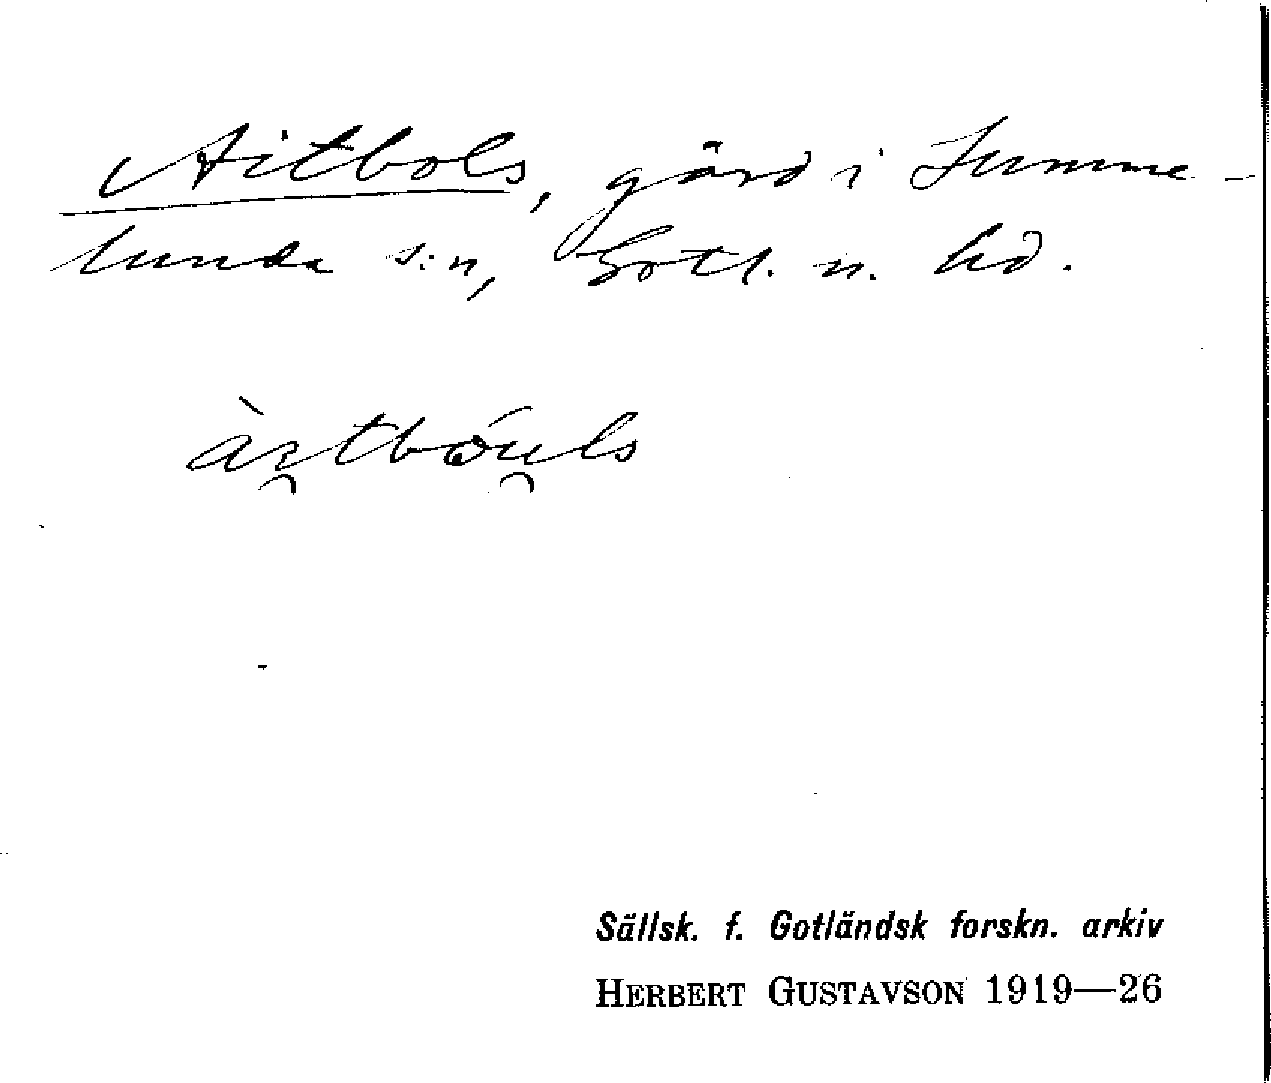 Aitbols, gård i Lumme-
lunda s:n, Gotl. n. hd.
àɪ̯tbóu̯ls
Sällsk. f. Gotländsk forskn. arkiv
HERBERT GUSTAVSON 1919—26